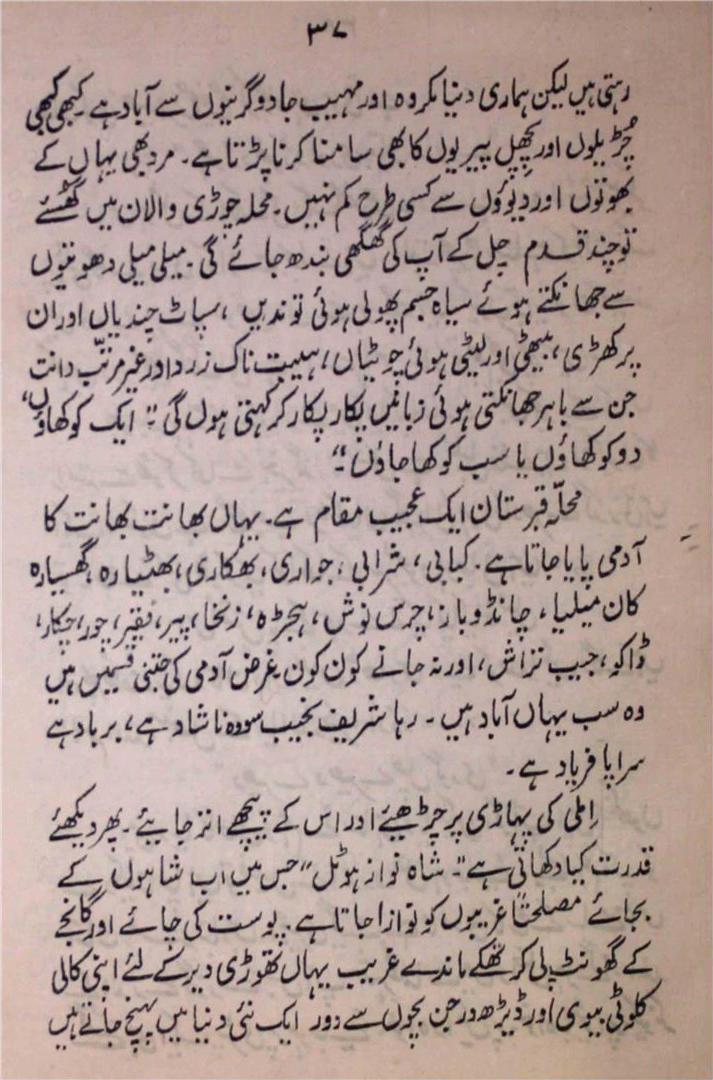 ۳۷
رہتی ہیں لیکن ہماری دنیا مکروہ اور مہیب جادوگرنیوں سے آباد ہے۔ کبھی کبھی
چُڑیلوں اور پچھل پیریوں کا بھی سامنا کرنا پڑتا ہے۔ مرد بھی یہاں کے
بھوتوں اور دیوؤں سے کسی طرح کم نہیں۔ محلہ چوڑی والان میں گھُسئے
تو چند قدم چل کے آپ کی گھگھی بندھ جائے گی۔ میلی میلی دھوتیوں
سے جھانکتے ہوئے سیاہ جسم پھولی ہوئی توندیں، سپاٹ چندیاں اور ان
پر کھڑی، بیٹھی اور لیٹی ہوئی چوٹیاں، ہیبت ناک زرد اور غیر مرتّب دانت
جن سے باہر جھانکتی ہوئی زبانیں پکار پکار کر کہتی ہوں گی۔" ایک کو کھاؤں،
دو کو کھاؤں یا سب کو کھا جاؤں۔"
محلّہ قبرستان ایک عجیب مقام ہے۔ یہاں بھانت بھانت کا
آدمی پایا جاتا ہے۔ کبابی، شرابی، جواری، بھکاری، بھٹیارہ، گھسیارہ
کان میلیا، چانڈو باز، چرس نوش، ہیجڑہ، زنخا، پیر، فقیر، چور، چکار،
ڈاکو، جیب تراش، اور نہ جانے کون کون۔ غرض آدمی کی جتنی قسمیں ہیں
وہ سب یہاں آباد ہیں۔ رہا شریف نجیب سو وہ ناشاد ہے، برباد ہے
سراپا فریاد ہے۔
اِملی کی پہاڑی پر چڑھیئے اور اس کے پیچھے اتر جایئے۔ پھر دیکھئے
قدرت کیا دکھاتی ہے۔ "شاہ نواز ہوٹل" جس میں اب شاہوں کے
بجائے مصلحتاً غریبوں کو نوازا جاتا ہے۔ پوست کی چائے اور گانجے
کے گھونٹ پی کر تھکے ماندے غریب یہاں تھوڑی دیر کے لئے اپنی کالی
کلوٹی بیوی اور ڈیڑھ درجن بچوں سے دور ایک نئی دنیا میں پہنچ جاتے ہیں